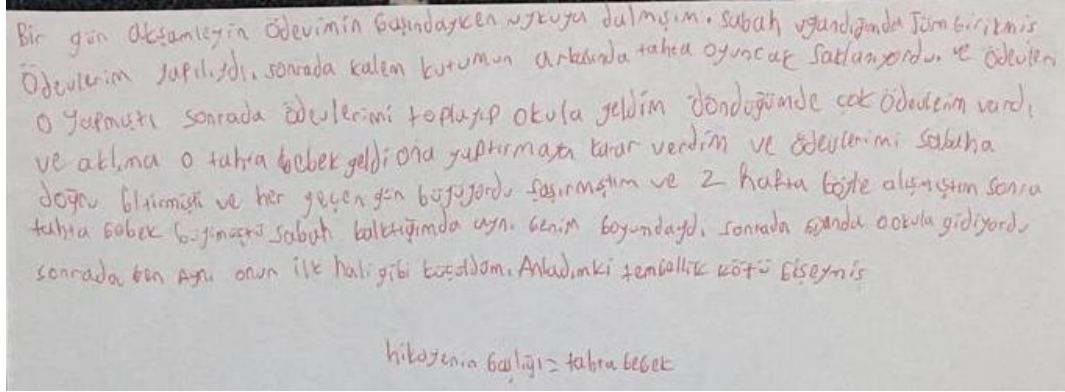 Bir gün akşamleyin ödevimin başındayken uykuya dalmışım. sabah uyandığımda Tüm birikmiş
Ödevlerim yapılıydı. sonrada kalem kutumun arkasında tahta oyuncak saklanıyordu. ve ödevleri
o yapmıştı sonrada ödevlerimi toplayıp okula geldim döndüğümde çok ödevlerim vardı
ve aklıma o tahta bebek geldi ona yaptırmaya karar verdim ve ödevlerimi sabaha
doğru bitirmişti ve her geçen gün büyüyordu şaşırmıştım ve 2 hafta böyle alışmıştım sonra
tahta bebek büyümüştü sabah kalktığımda aynı benim boyumdaydı sonrada o okula gidiyordu
sonrada ben Aynı onun ilk hali gibi Anladımki tembellik kötü bişeymiş
hikayenin başlığı = tahta bebek